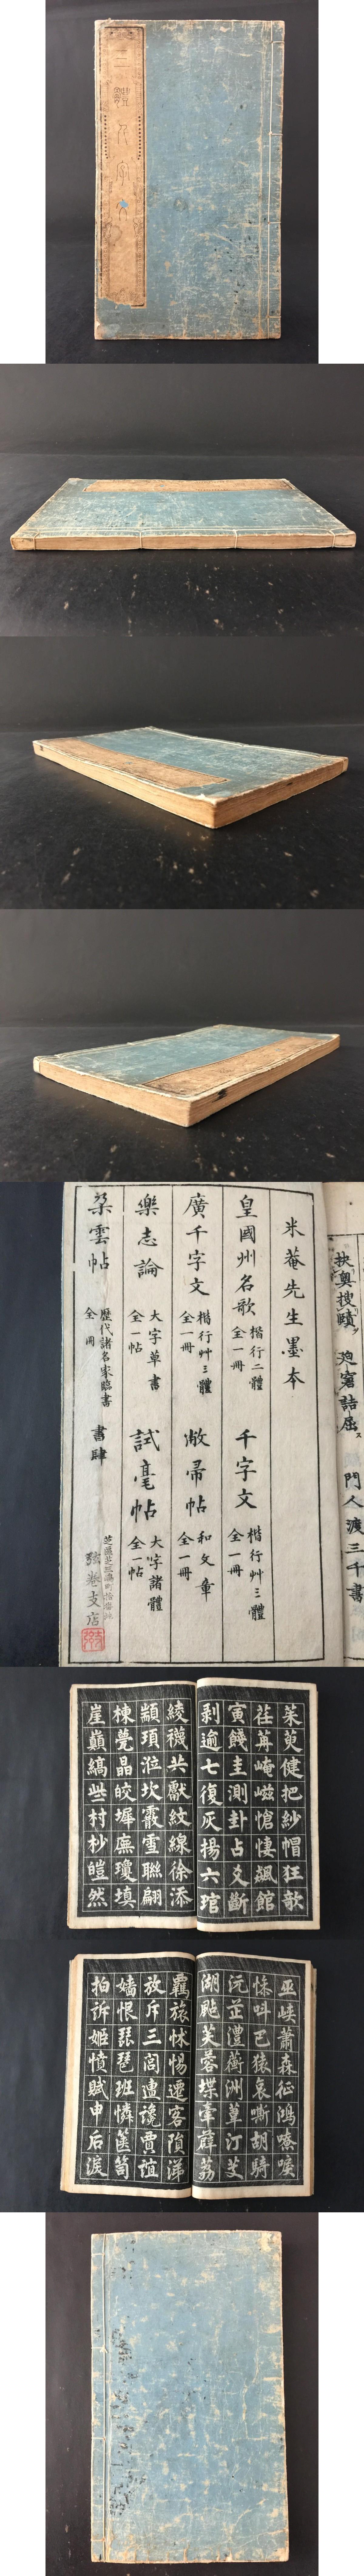 三體千字文
米菴先生墨本
皇國州名歌 楷行二體 全一冊 千字文 楷行艸三體 全一冊
廣千字文 楷行艸三體 全一冊 敝帚帖 和文章 全一冊
樂志論 大字草書 全一帖 試毫帖 大字諸體 全一帖
歷代諸名家臨書 全 冊 書肆
支店
扶輿搜賾 迎窘詰屈 門人 渡三千書
茱萸健把紗帽狂歌
荏苒崦嵫愴悽飆館
寅餞圭測卦占爻斷
剥逾七復灰揚六琯
綾襪共獻紋線徐添
顓頊涖坎霰雪聯翩
棟甍晶皎墀廡瓊填
崖巔縞些村杪皚然
巫峽蕭森征鴻嘹唳
巴猿哀嘶胡騎
沅芷澧蘅洲蕈汀芰
湖 芙蓉堞牽薜荔
羈旅怵惕遷客隕涕
放斥三閭盧讒賈誼
嬙恨琵琶班憐篋笥
拍訴姬憤賦申后淚